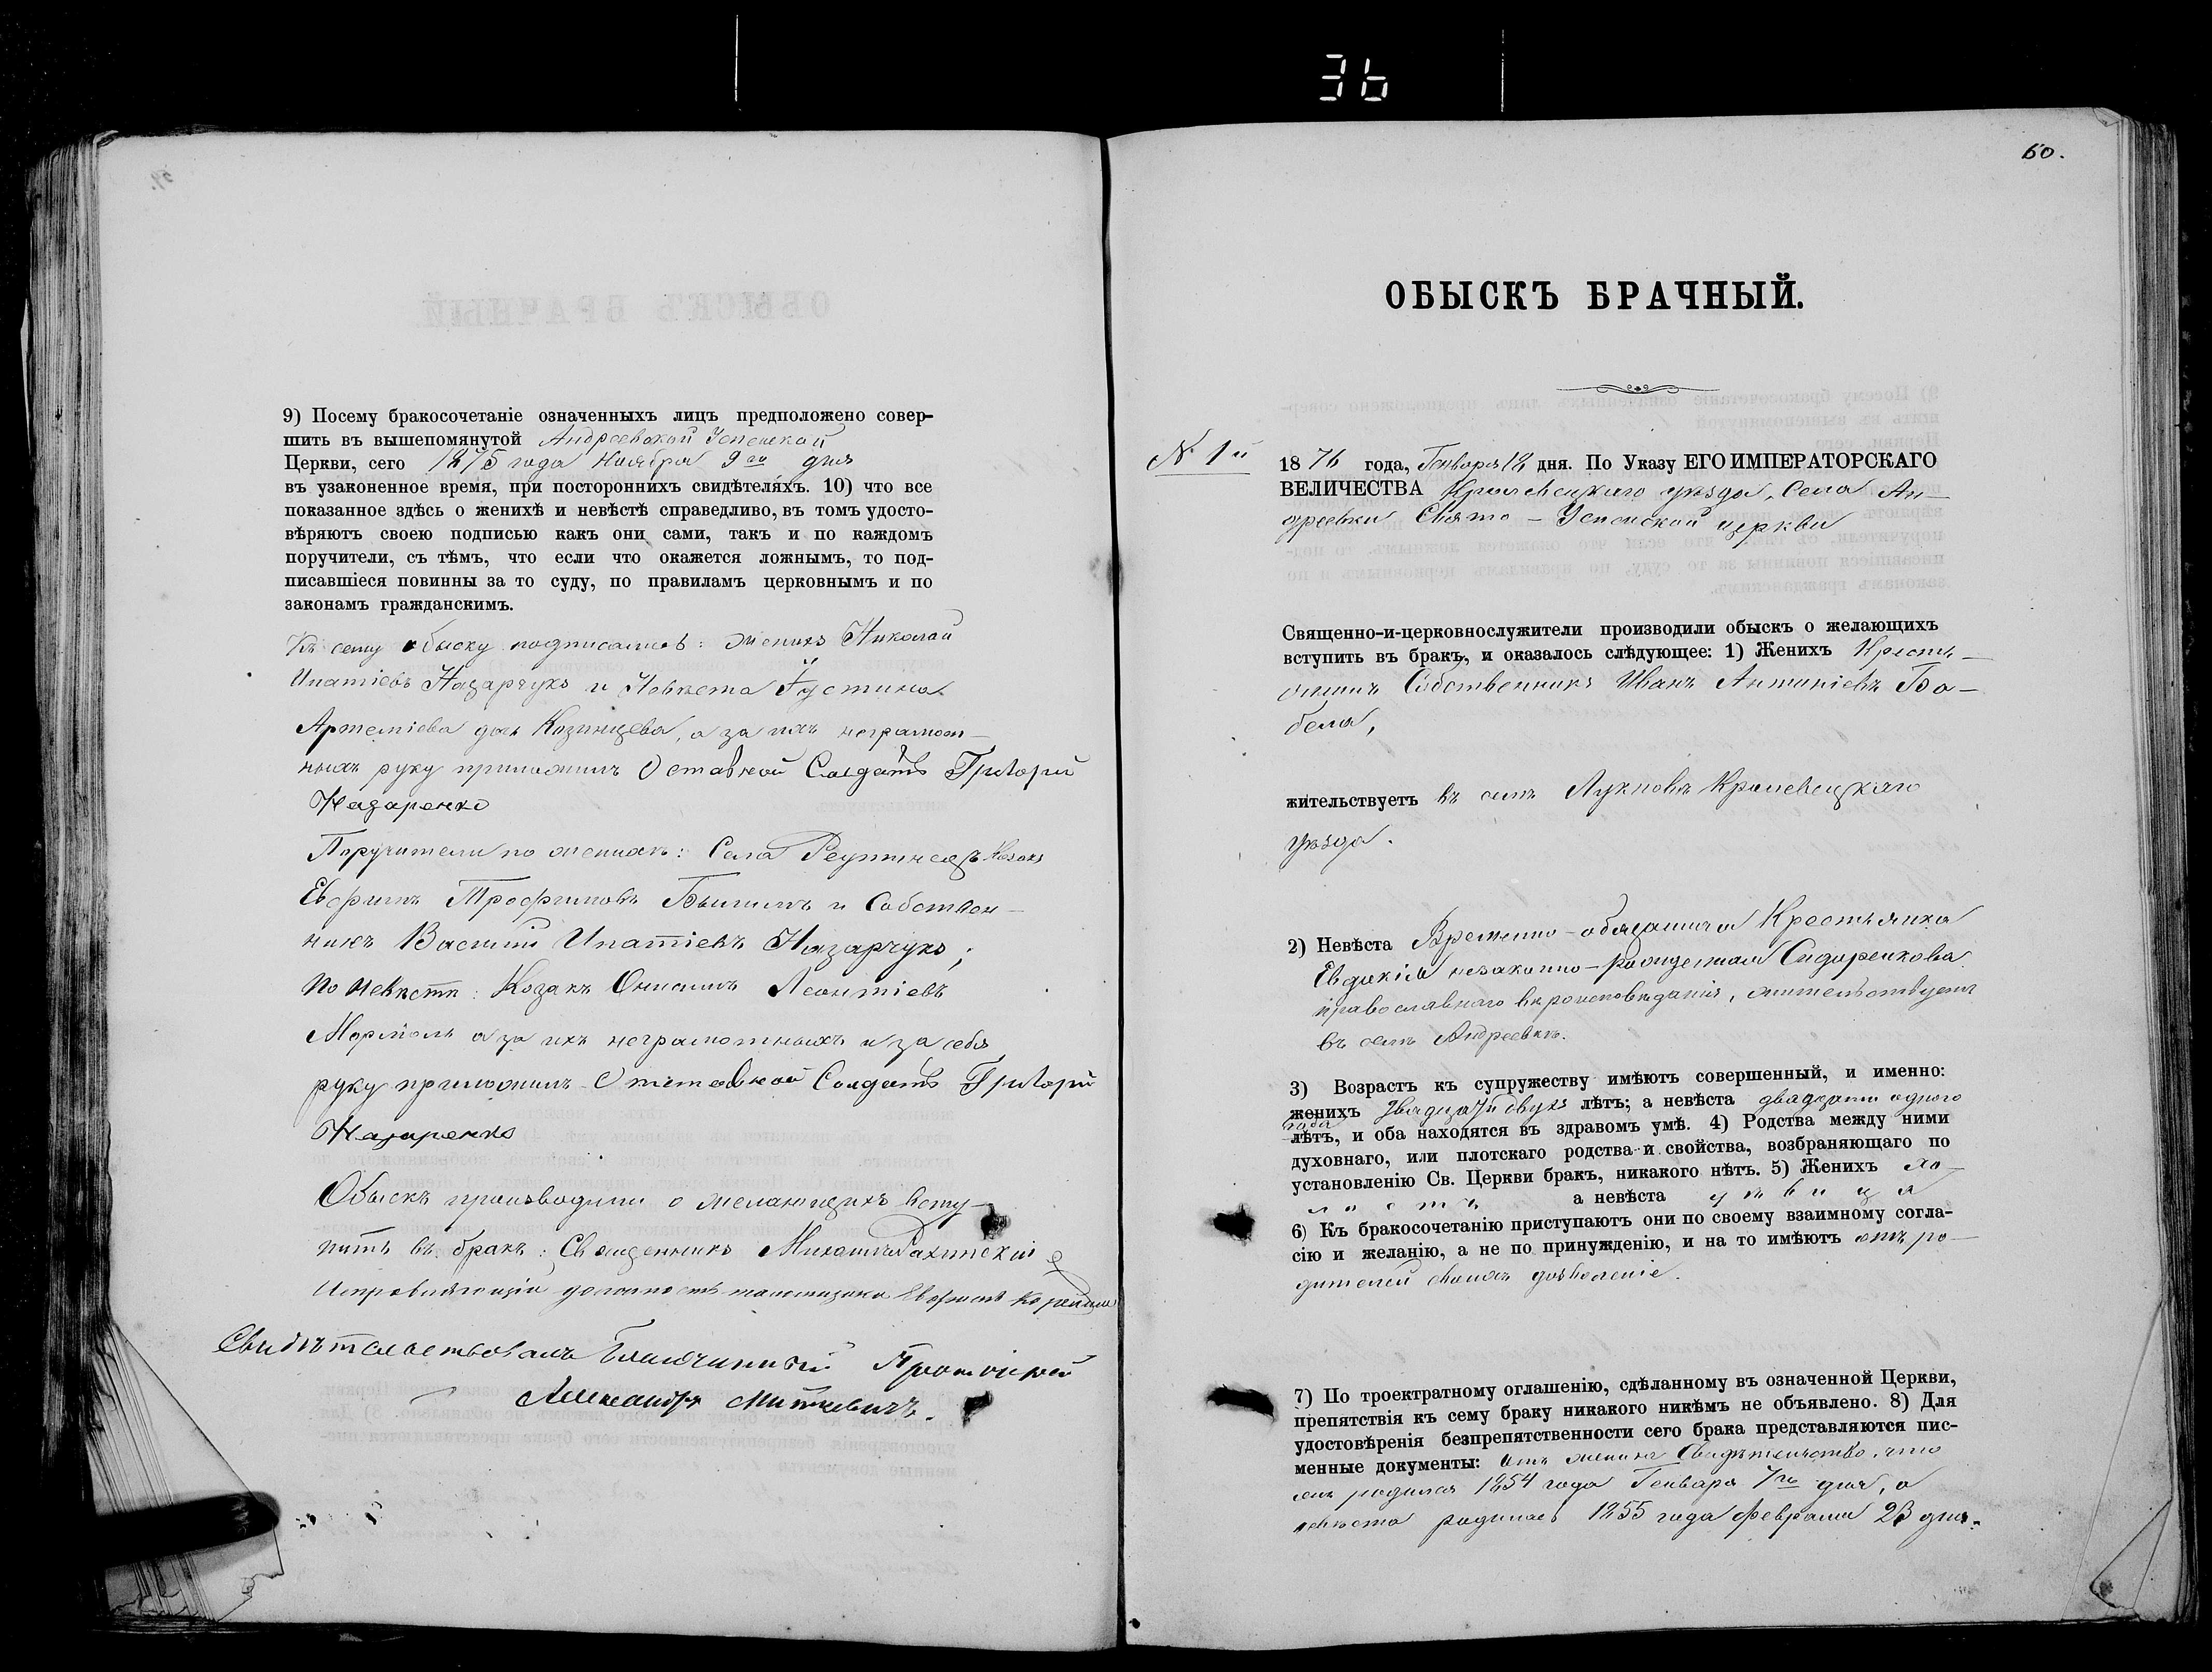 36
9) Посему бракосочетаніе означенныхъ лицъ предположено совер-
шить въ вышепомянутой Андреевской Успенской
Церкви, сего 1875 года Ноября 9го дня
въ узаконенное время, при постороннихъ свидѣтеляхъ. 10) что все
показанное здѣсь о женихѣ и невѣстѣ справедливо, въ томъ удосто-
вѣряютъ своею подписью какъ они сами, такъ и по каждомъ
поручители, съ тѣмъ, что если что окажется ложнымъ, то под-
писавшіеся повинны за то суду, по правиламъ церковнымъ и по
законамъ гражданскимъ.
Къ сему обыску подписались: женихъ Николай
Ипатіевъ Назарчукъ и Невѣста Іустина
Артеміева дочь Козинцева, а за ихъ неграмот-
ныхъ руку приложилъ Оставной Солдатъ Григорій
Назаренко
Поручители по женихѣ: Села Реутинецъ Козакъ
Евфимъ Трофимовъ и Собствен-
никъ Василій Ипатіевъ Назарчукъ;
По невѣстѣ: Козакъ Онисимъ Леонтіевъ
а за ихъ неграмотныхъ и за себя
руку приложилъ Отставной Солдатъ Григорій
Назаренко
Обыскъ производили о желающихъ всту-
пить въ бракъ: Священникъ Михаилъ
Исправляющій должность Евфимій
Свидѣтельствовалъ Благочинный Протоіерей
Александръ Миткевичъ.
60.
ОБЫСКЪ БРАЧНЫЙ.
№ 1й
1876 года, Генваря 18 дня. По Указу ЕГО ИМПЕРАТОРСКАГО
ВЕЛИЧЕСТВА Кролевецкаго уѣзда, Села Ан-
дреевки Свято-Успенской церкви
Священно-и-церковнослужители производили обыскъ о желающихъ
вступить въ бракъ, и оказалось слѣдующее: 1) Женихъ Крестья-
нинъ Собственникъ Иванъ Антиніевъ Ба-
бела,
жительствуетъ въ селѣ Лукновѣ Кролевецкаго
уѣзда.
2) Невѣста Временно-обязанная Крестьянка
Евдокія незаконно-рожденная Сидоренкова
православнаго вѣроисповѣданія, жительствуетъ
въ селѣ Андреевкѣ.
3) Возрастъ къ супружеству имѣютъ совершенный, и именно:
женихъ двадцати двухъ лѣтъ; а невѣста двадцати одного
года
лѣтъ, и оба находятся въ здравомъ умѣ. 4) Родства между ними
духовнаго, или плотскаго родства и свойства, возбраняющаго по
установленію Св. Церкви бракъ, никакого нѣтъ. 5) Женихъ хо-
лостъ а невѣста дѣвица
6) Къ бракосочетанію приступаютъ они по своему взаимному согла-
сію и желанію, а не по принужденію, и на то имѣютъ отъ ро-
дителей своихъ дозволеніе.
7) По троекратному оглашенію, сдѣланному въ означенной Церкви,
препятствія къ сему браку никакого никѣмъ не объявлено. 8) Для
удостовѣренія безпрепятственности сего брака представляются пис-
менные документы: отъ жениха Свидѣтельство, что
онъ родился 1854 года Генваря 7го дня, а
невѣста родилась 1855 года февраля 23 дня.